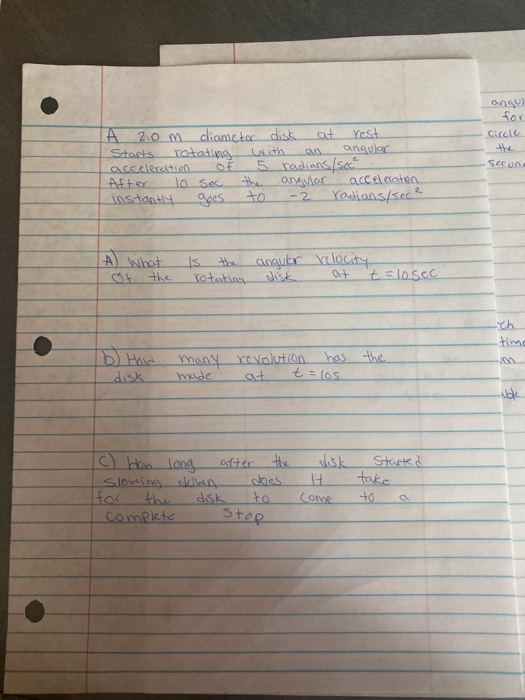 A 2.0 m diameter disk at rest
Starts rotating with an angular
acceleration of 5 radians/sec²
After 10 sec the angular acceleraton
Instantly goes to -2 radians/sec²
A) What Is the angular velocity
Of the rotating disk at t=10sec
b) How many revolution has the
disk made at t=10s
C) How long after the disk started
slowing down does It take
for the disk to come to a
complete stop
angul
for
circle
the
secon
ch
time